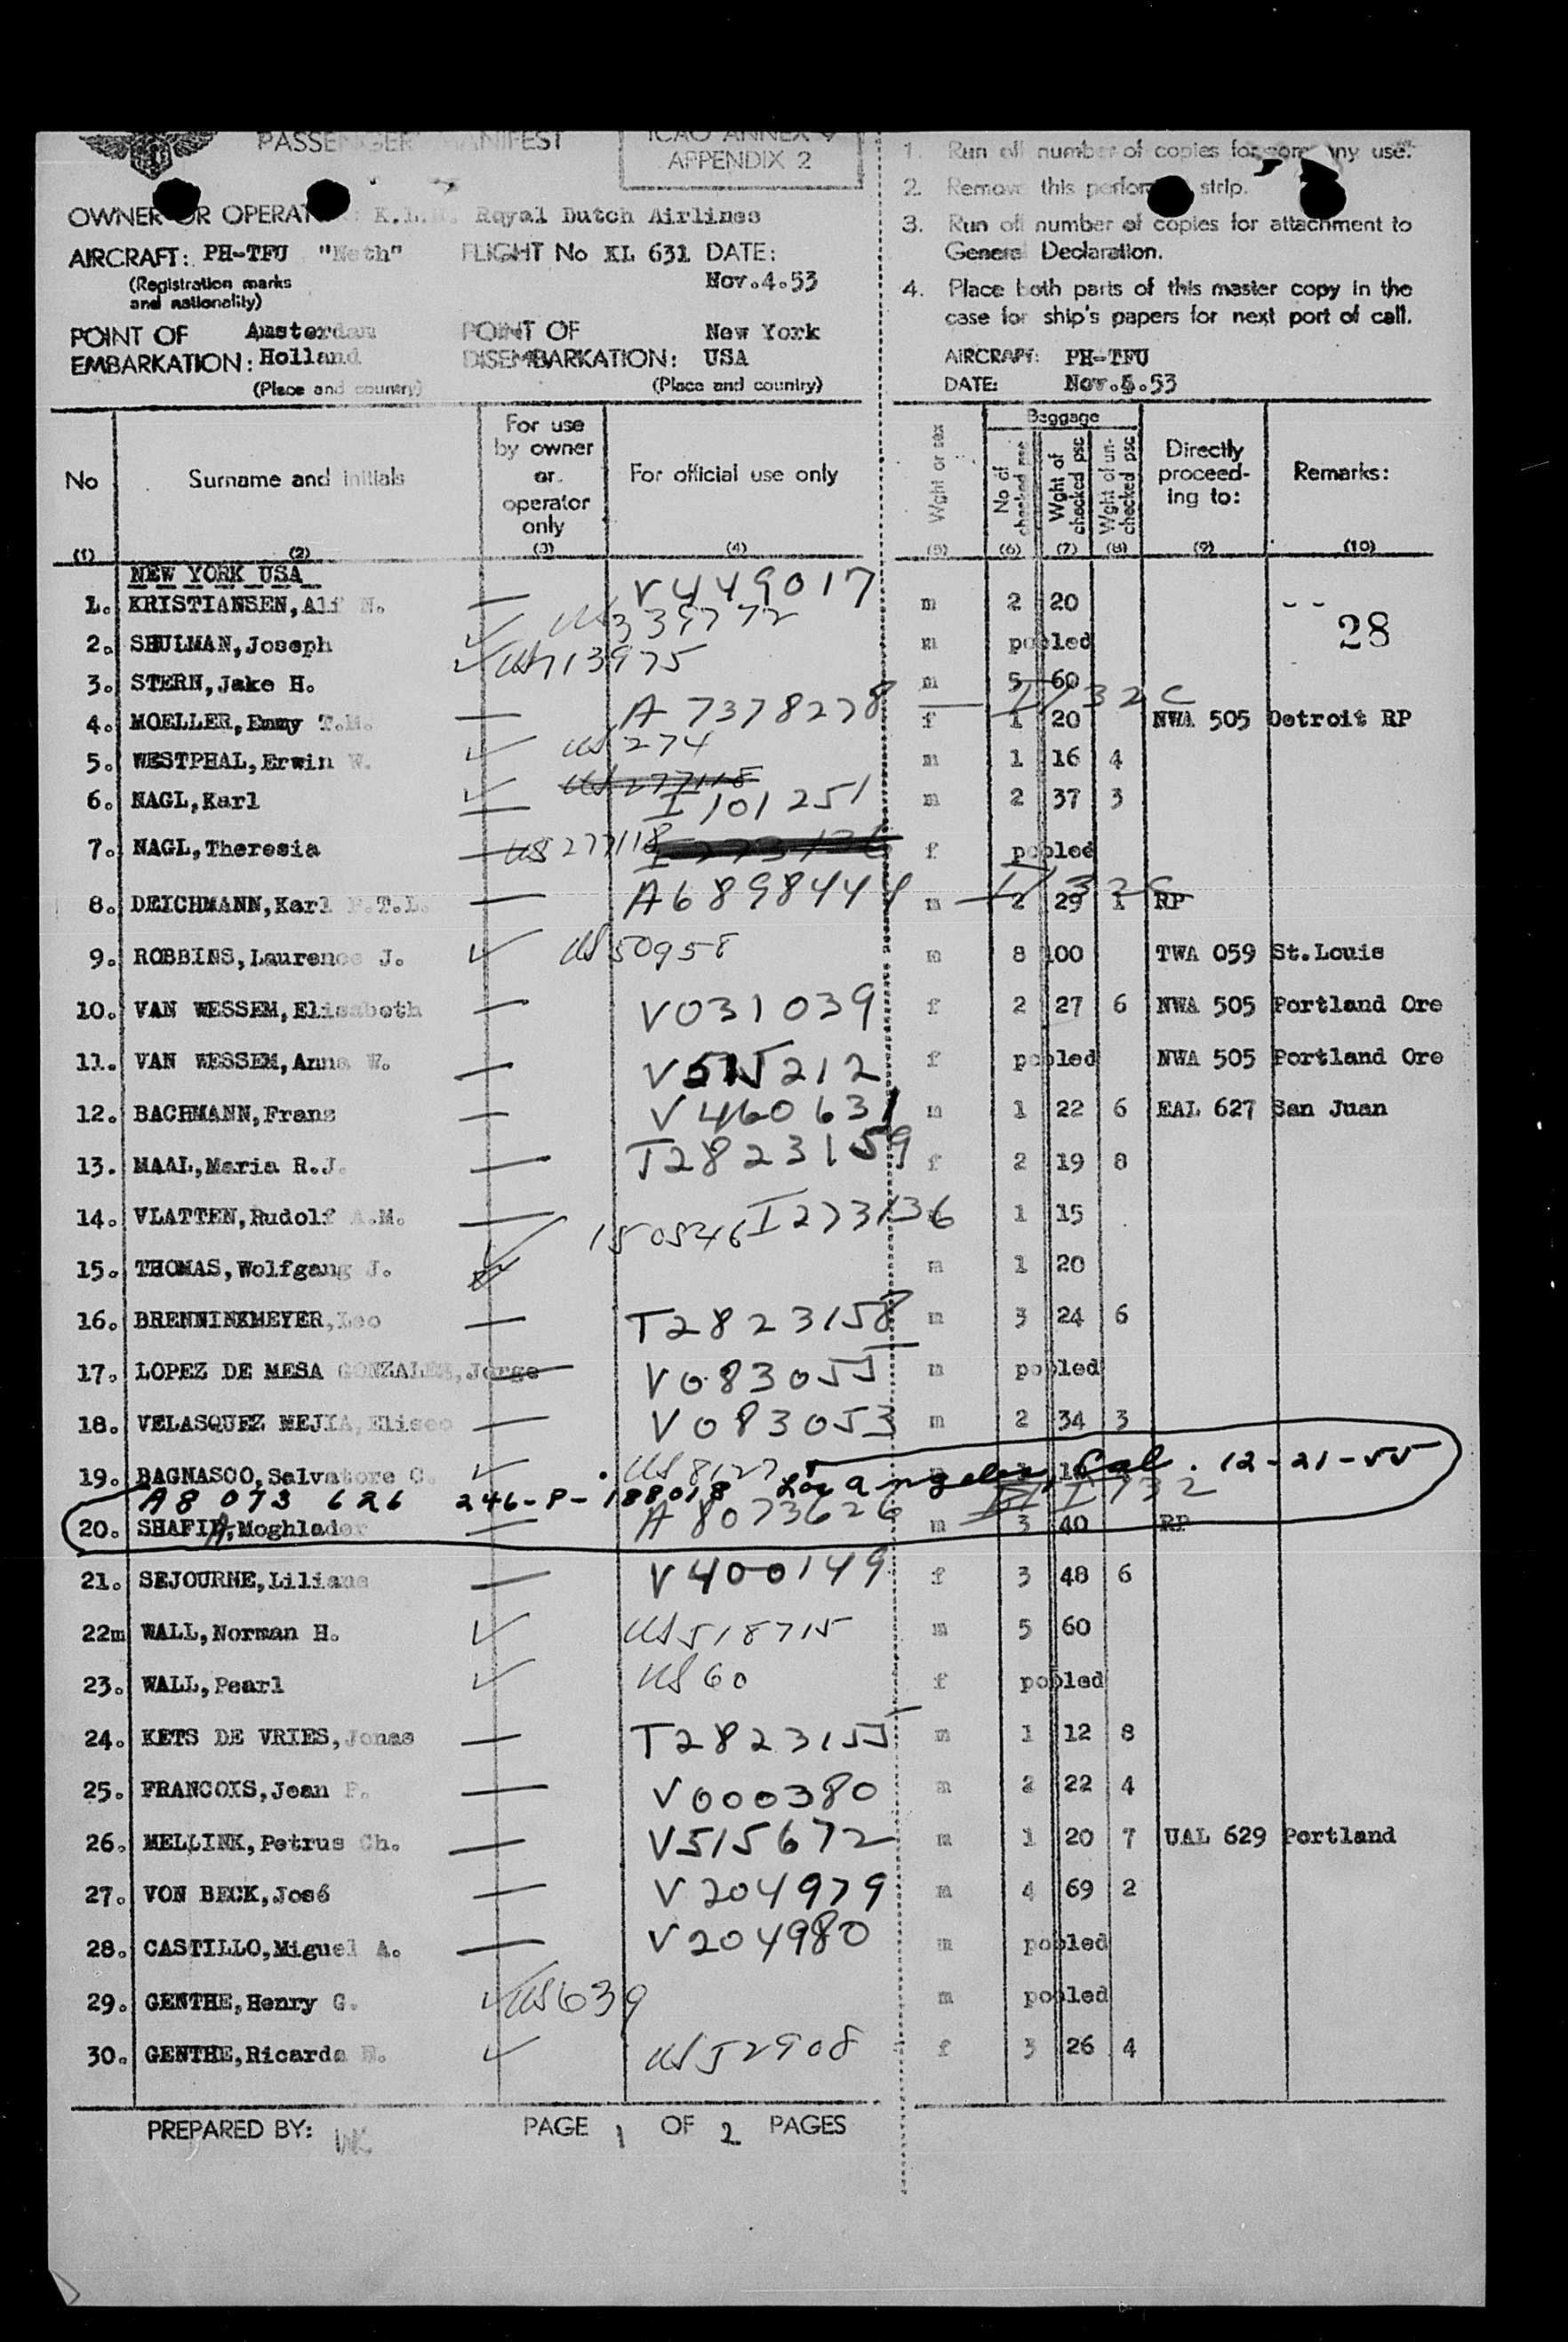 PASSENGER MANIFEST
ICAO ANNEX 9
APPENDIX 2
OWNER OR OPERATOR: K.L.M. Royal Dutch Airlines
AIRCRAFT: PH-TFU "Neth" FLIGHT No KL 631 DATE:
(Registration marks Nov.4.53
and nationality)
POINT OF Amsterdam POINT OF New York
EMBARKATION: Holland DISEMBARKATION: USA
(Place and country) (Place and country)
1. Run off number of copies for company use.
2. Remove this perfor strip.
3. Run off number of copies for attachment to
General Declaration.
4. Place both parts of this master copy in the
case for ship's papers for next port of call.
AIRCRAFT: PH-TFU
DATE: Nov.5.53
No Surname and initials For use by owner or operator only For official use only Wght or sex Baggage No of checked psc Wght of checked psc Wght of un-checked psc Directly proceed-ing to: Remarks:
(1) (2) (3) (4) (5) (6) (7) (8) (9) (10)
NEW YORK USA
1. KRISTIANSEN,Alf N. — V449017 m 2 20
28
2. SHULMAN,Joseph ✓ US339772 m pooled
3. STERN,Jake H. ✓ US713975 m 5 60
I 732C
4. MOELLER,Emmy T.M. — A 7378278 f 1 20 NWA 505 Detroit RP
5. WESTPHAL,Erwin W. ✓ US 274 m 1 16 4
US 277118
6. NAGL,Karl ✓ — I 101251 m 2 37 3
7. NAGL,Theresia — US 277118 I 273136 f pooled
I 732C
8. DEICHMANN,Karl F.T.L. — A6898444 m 2 29 1 RP
9. ROBBINS,Laurence J. ✓ US 50958 m 8 100 TWA 059 St.Louis
10. VAN WESSEM,Elisabeth — V031039 f 2 27 6 NWA 505 Portland Ore
11. VAN WESSEM,Anna W. — V515212 f pooled NWA 505 Portland Ore
12. BACHMANN,Frans — V460631 m 1 22 6 EAL 627 San Juan
13. MAAL,Maria R.J. — T2823159 f 2 19 8
14. VLATTEN,Rudolf A.M. — I273136 1 15
15. THOMAS,Wolfgang J. ✓ 150546 m 1 20
16. BRENNINKMEYER,Leo — T2823158 m 3 24 6
17. LOPEZ DE MESA GONZALES,Jorge — V083055 m pooled
18. VELASQUEZ MEJIA,Eliseo — V083053 m 2 34 3
19. BAGNASCO,Salvatore C. ✓ US 8127
A8 073 626 246-P-188018 Los Angeles, Cal. 12-21-55
I 732
20. SHAFIA,Moghlader — A 8073626 m 3 40 RP
21. SEJOURNE,Liliane — V400149 f 3 48 6
22m WALL,Norman H. ✓ US518715 m 5 60
23. WALL,Pearl ✓ US 60 f pooled
24. KETS DE VRIES,Jonas — T2823155 m 1 12 8
25. FRANCOIS,Jean P. — V000380 m 2 22 4
26. MELLINK,Petrus Ch. — V515672 m 1 20 7 UAL 629 Portland
27. VON BECK,José — V204979 m 4 69 2
28. CASTILLO,Miguel A. — V204980 m pooled
29. GENTHE,Henry G. ✓ US639 m pooled
30. GENTHE,Ricarda ✓ US52908 f 3 26 4
PREPARED BY: PAGE 1 OF 2 PAGES